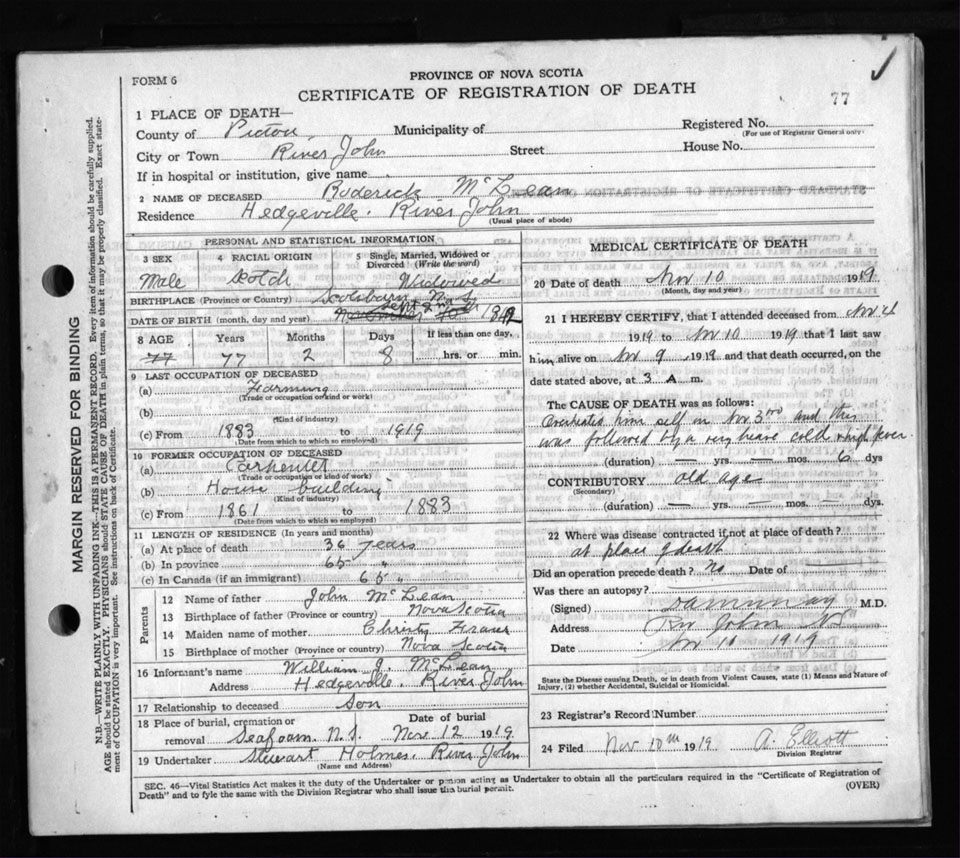 FORM 6
PROVINCE OF NOVA SCOTIA
CERTIFICATE OF REGISTRATION OF DEATH
77
1 PLACE OF DEATH—
County of Pictou Municipality of Registered No.
(For use of Registrar General only)
City or Town River John Street House No.
If in hospital or institution, give name
2 NAME OF DECEASED Roderick McLean
Residence Hedgeville. River John
(Usual place of abode)
PERSONAL AND STATISTICAL INFORMATION
3 SEX 4 RACIAL ORIGIN 5 Single, Married, Widowed or Divorced (Write the word)
Male Scotch Widowed
BIRTHPLACE (Province or Country) Scotsburn N.S.
DATE OF BIRTH (month, day and year) Sept 2nd
8 AGE Years Months Days If less than one day,
77 77 2 8 hrs. or min.
9 LAST OCCUPATION OF DECEASED
(a) Farming
(Trade or occupation or kind or work)
(b)
(Kind of industry)
(c) From 1883 to 1919
(Date from which to which so employed)
10 FORMER OCCUPATION OF DECEASED
(a) Carpenter
(Trade or occupation or kind of work)
(b) House building
(Kind of industry)
(c) From 1861 to 1883
(Date from which to which so employed)
11 LENGTH OF RESIDENCE (In years and months)
(a) At place of death 36 years
(b) In province 65 "
(c) In Canada (if an immigrant) 65 "
Parents
12 Name of father John McLean
13 Birthplace of father (Province or country) Nova Scotia
14 Maiden name of mother Christy Fraser
15 Birthplace of mother (Province or country) Nova Scotia
16 Informant's name William J. McLean
Address Hedgeville. River John
17 Relationship to deceased Son
18 Place of burial, cremation or removal Seafoam. N.S. Date of burial Nov. 12 1919
19 Undertaker Stewart Holmes. River John
(Name and Address)
MEDICAL CERTIFICATE OF DEATH
20 Date of death Nov 10 1919
(Month, day and year)
21 I HEREBY CERTIFY, that I attended deceased from Nov
1919 to Nov 10 1919 that I last saw
him alive on Nov 9 1919 and that death occurred, on the
date stated above, at 3 A m.
The CAUSE OF DEATH was as follows:
Overheated him self on Nov 3rd and this
was followed by a very heavy cold high fever.
(duration) — yrs. — mos. 6 dys
CONTRIBUTORY old age
(Secondary)
(duration) — yrs. — mos. — dys.
22 Where was disease contracted if not at place of death?
at place of death
Did an operation precede death? no Date of
Was there an autopsy?
(Signed) M.D.
Address Riv John NS
Date Nov 11 1919
State the Disease causing Death, or in death from Violent Causes, state (1) Means and Nature of
Injury, (2) whether Accidental, Suicidal or Homicidal.
23 Registrar's Record Number
24 Filed Nov 20th 1919 A. Elliott
Division Registrar
SEC. 46—Vital Statistics Act makes it the duty of the Undertaker or person acting as Undertaker to obtain all the particulars required in the "Certificate of Registration of
Death" and to fyle the same with the Division Registrar who shall issue the burial permit. (OVER)
MARGIN RESERVED FOR BINDING
N.B.—WRITE PLAINLY WITH UNFADING INK—THIS IS A PERMANENT RECORD. Every item of information should be carefully supplied.
AGE should be stated EXACTLY. PHYSICIANS should STATE CAUSE OF DEATH in plain terms, so that it may be properly classified. Exact statement
of OCCUPATION is very important. See instructions on back of Certificate.